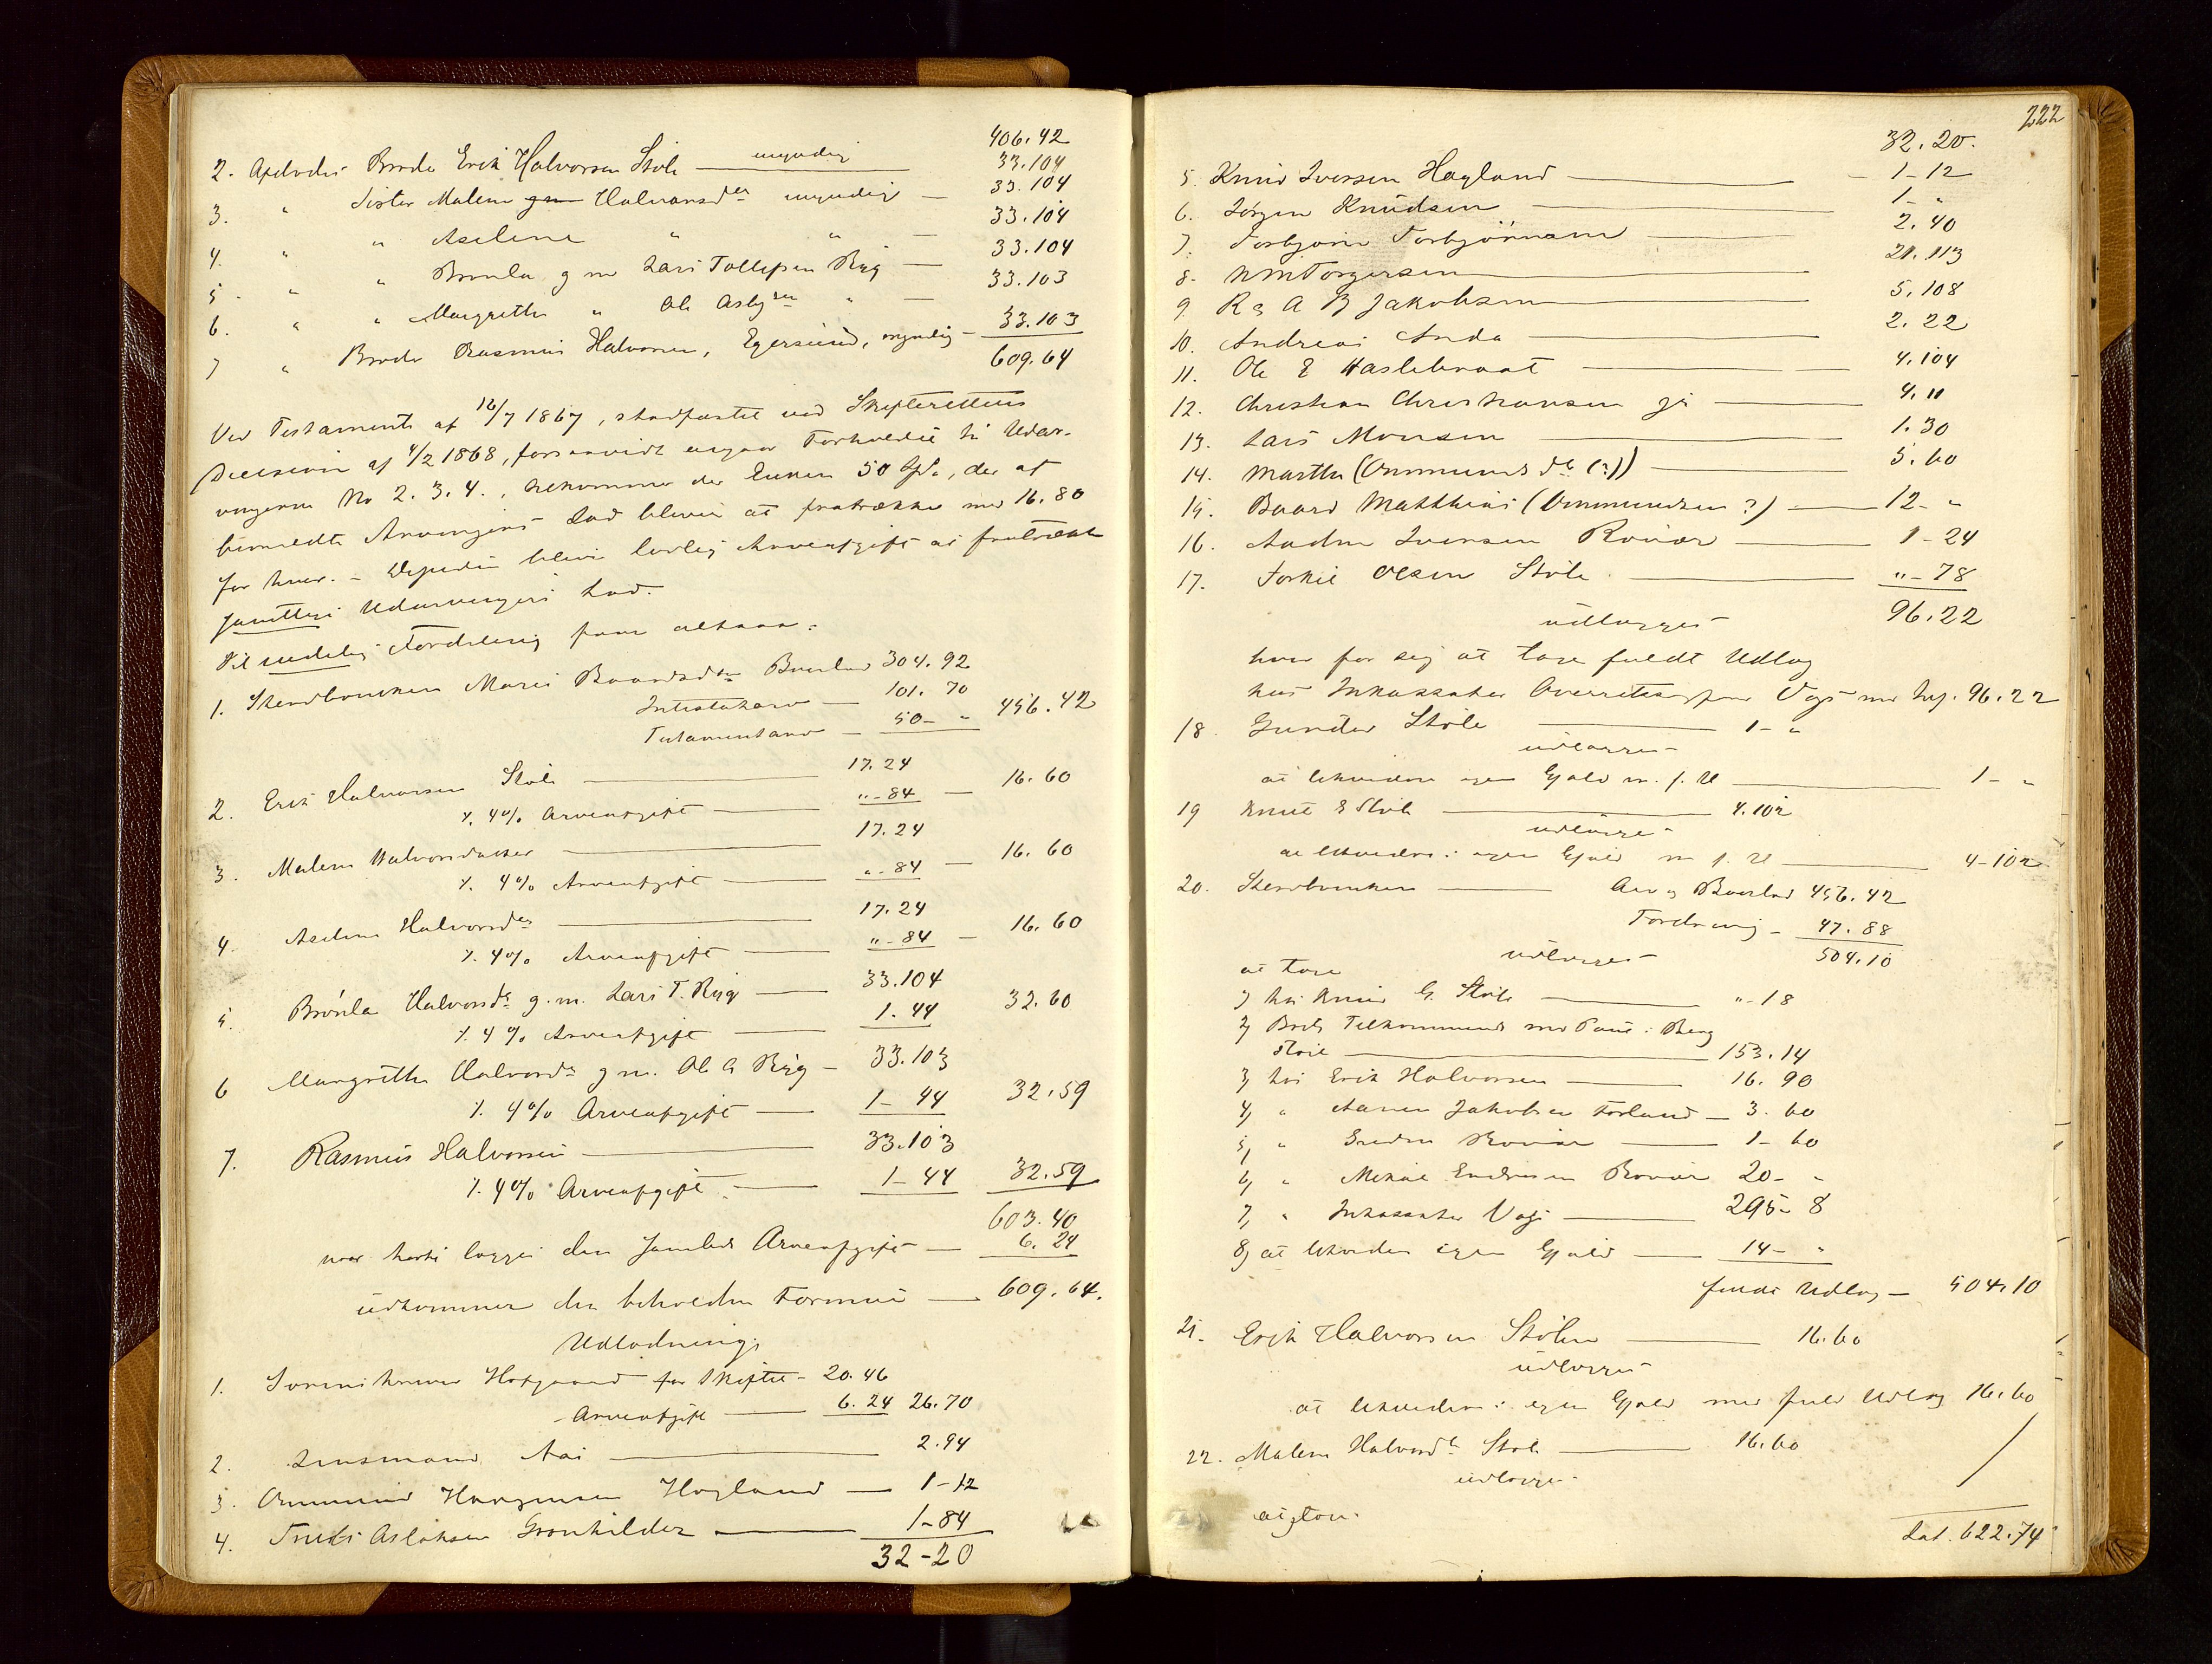 406.42
2. Afdødes Broder Erik Halvorsen Støle — myndig 33.104
3. " Søster Malene Halvorsdtr myndig — 33.104
4. " " Aselene " " — 33.104
5. " " Bronla g m Lars Tollefsen Ryg — 33.104
6. " " Margrethe " Ole " — 33.103
7 " Broder Rasmus Halvorsen, Egersund, myndig — 33.103
609.64
Ved Testament af 16/7 1867, stadfæstet ved Skifterettens
Decision af 4/2 1868, forsaavidt angaar Forholdet til Udar-
vingerne No 2. 3. 4., bekommer der Enken 50 Spd, der af
bemeldte Arvingers Lod bliver at fratrække med 16.80
for hver. – Desuden bliver lovlig Arveafgift at fratrække
samtlige Udarvingers Lod.
Til endelig Fordeling faar altsaa:
1. Stervboenken Maren Baardsdtr Boeslod 304.92
Intestatarv — 101. 70
Testamentarv — 50 – " 456.42
2. Erik Halvorsen Støle — 17.24
÷ 4% Arveafgift — " – 84 — 16. 60
3. Malene Halvorsdatter — 17.24
÷ 4% Arveafgift — " – 84 — 16. 60
4. Aselene Halvorsdtr — 17.24
÷ 4% Arveafgift — " – 84 — 16. 60
5. Bronla Halvorsdtr g. m. Lars T. Ryg — 33.104
÷ 4% Arveafgift — 1. 44 32.60
6 Margrethe Halvorsdtr g m. Ole A Ryg — 33.103
÷ 4% Arveafgift — 1 – 44 32.59
7. Rasmus Halvorsen — 33.103
÷ 4% Arveafgift — 1 – 44 32.59
603.40
naar hertil lægges den samlede Arveafgift — 6. 24
udkommer den beholdne Formue — 609.64.
Udlodning:
1. Sorenskriver Hofgaard for Skiftet – 20.46
Arveafgift — 6.24 26.70
2. Lensmand Aas — 2.94
3. Ommund Hagland — 1 – 12
4. Aslaksen Gronhilder — 1 – 84
32 – 20
222
32.20.
5. Knud Iversen Hagland — 1 – 12
6. Jørgen Knudsen — 1 – "
7. Torbjørn Torbjørnsen — 2.40
8. N M Torgersen — 21.113
9. R & A B Jakobsen — 5.108
10. Andreas Anda — 2.22
11. Ole E Haslebraat — 4.104
12. Christian Christiansen — 4.11
13. Lars Monsen — 1.30
14. Martha (Ommundsdtr (?)) — 5.60
15. Baard Matthias (Ommundsen ?) — 12 – "
16. Iversen Rovær — 1 – 24
17. Torkel Olsen Støle — " – 78
udlægges 96.22
hver for sig at tage fuldt Udlæg
hos Inkassator Overretssagfører Vogt med 96.22
18 Gunder Støle — 1 – "
udlægges –
at likvidere egen Gjæld m. f. U — 1 – "
19 Knut G Støle — 4.102
udlægges –
at likvidere i egen Gjæld m f. U — 4 – 102
20. Stervboenken — Arv og Boeslod 456.42
Fordring – 47.88
udlægges – 504.10
at tage
1) hos Knud G. Støle — " – 18
2) Boets Tilkommende med Pant i
Støle — 153.14
3) hos Erik Halvorsen — 16. 90
4) " Aanen Jakobsen Førland — 3. 60
5) " Rovær — 1 – 60
6) " Mikal Endresen Rovær 20 – "
7) " Inkassator Vogt — 295 – 8
8) at likvidere egen Gjæld — 14 – "
fuldt Udlæg — 504.10
21. Erik Halvorsen Støle — 16.60
udlægges
at likvidere i egen Gjæld med fuld Udlæg 16.60
22. Malene Halvorsdtr Støle — 16.60
udlægges
at tage
Lat. 622.74